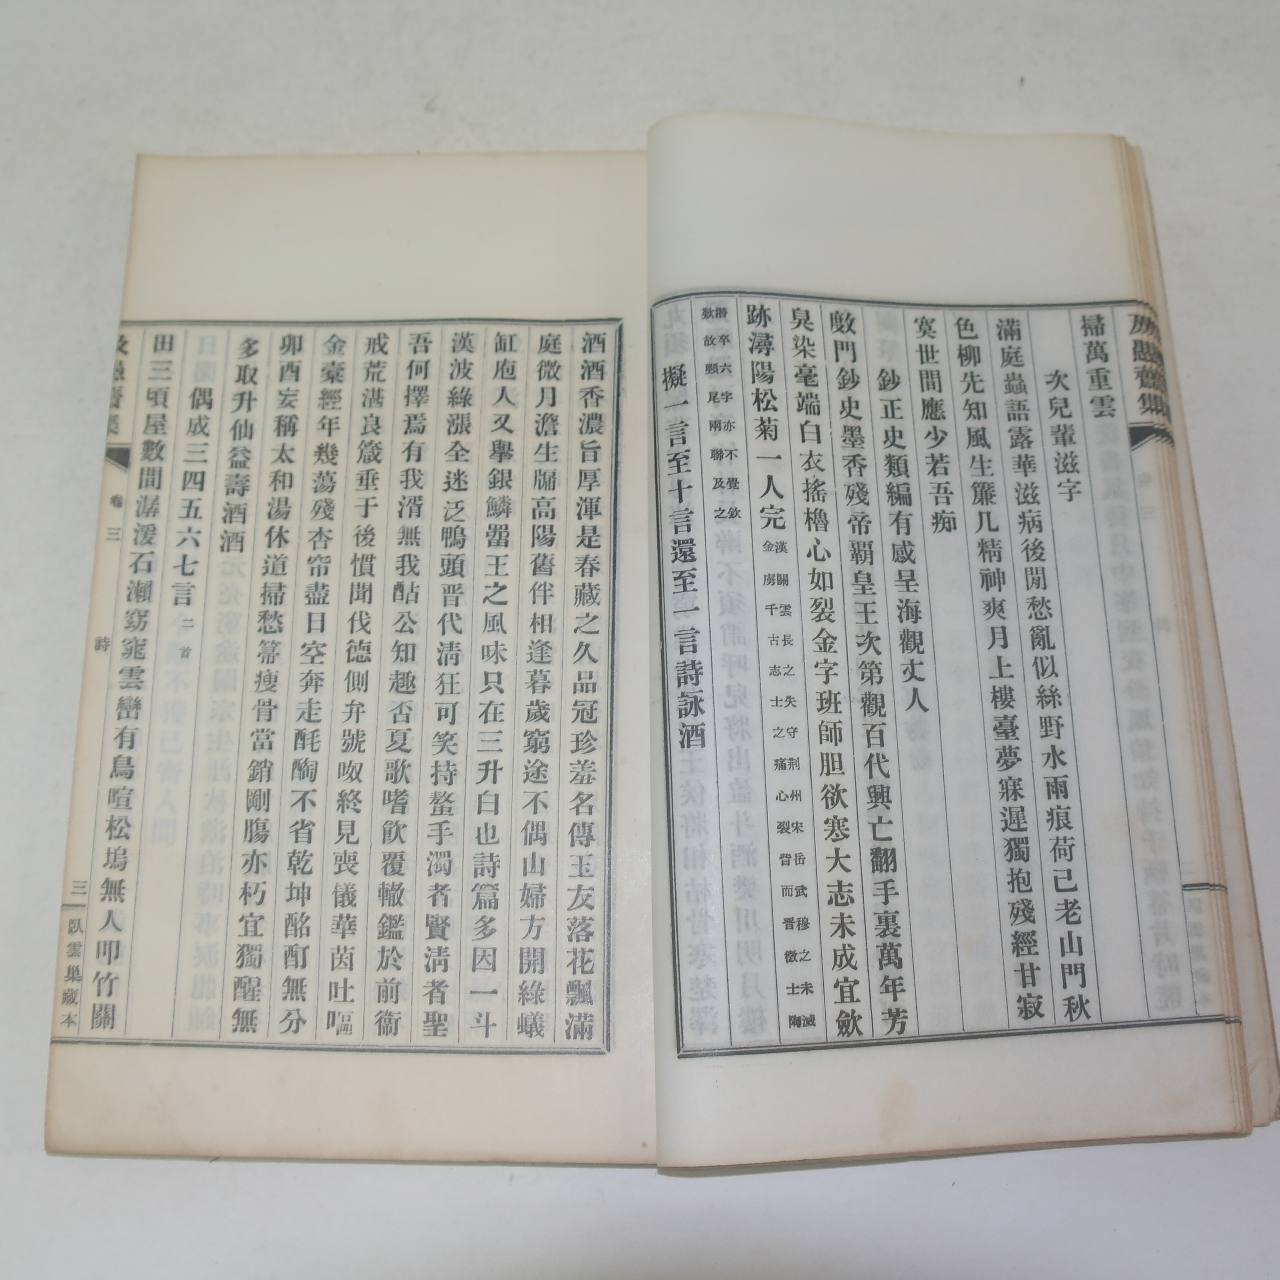 愚齋集
掃萬重雲
次兒輩滋字
滿庭蟲語露華滋病後閒愁亂似絲野水雨痕荷已老山門秋
色柳先知風生簾几精神爽月上樓臺夢寐遲獨抱殘經甘寂
寞世間應少若吾痴
鈔正史類編有感呈海觀丈人
敗門鈔史墨香殘帝覇皇王次第觀百代興亡翻手裏萬年芳
臭染毫端白衣搖櫓心如裂金字班師胆欲寒大志未成宜歛
跡潯陽松菊一人完
漢關雲長之失守荆州宋岳武穆之未滅
金虜千古志士之痛心裂眥而晋徵士陶
潛卒六字亦不覺欽
歎故頸尾兩聯及之
擬一言至十言還至一言詩詠酒
酒酒香濃旨厚渾是春藏之久品冠珍羞名傳玉友落花飄滿
庭微月澹生牖高陽舊伴相逢暮歲窮途不偶山婦方開綠蟻
缸庖人又擧銀鱗罶王之風味只在三升白也詩篇多因一斗
漢波綠漲全迷泛鴨頭晋代淸狂可笑持螯手濁者賢淸者聖
吾何擇焉有我湑無我酤公知趣否夏歌嗜飮覆轍鑑於前衞
戒荒湛良箴垂于後慣聞伐德側弁號呶終見喪儀華茵吐嘔
金橐經年幾蕩殘杏帘盡日空奔走酕醄不省乾坤酩酊無分
卯酉妄稱太和湯休道掃愁箒瘦骨當銷剛膓亦朽宜獨醒無
多取升仙益壽酒酒
偶成三四五六七言二首
田三頃屋數間潺湲石瀨窈窕雲巒有鳥喧松塢無人叩竹關
卷三
詩
三
臥雲巢藏本